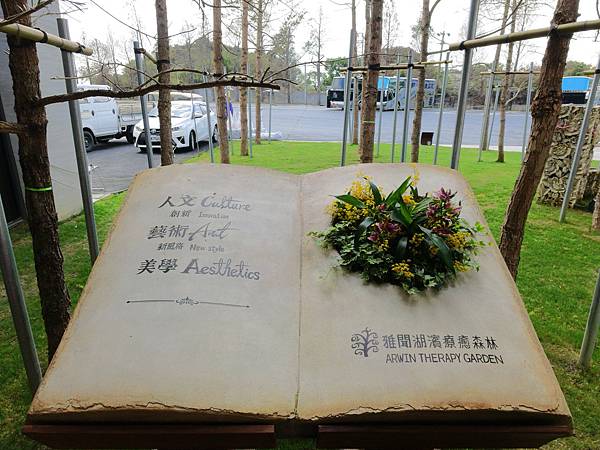 人文 Culture
創新 Innovation
藝術 Art
新風尚 New style
美學 Aesthetics
雅聞湖濱療癒森林
ARWIN THERAPY GARDEN